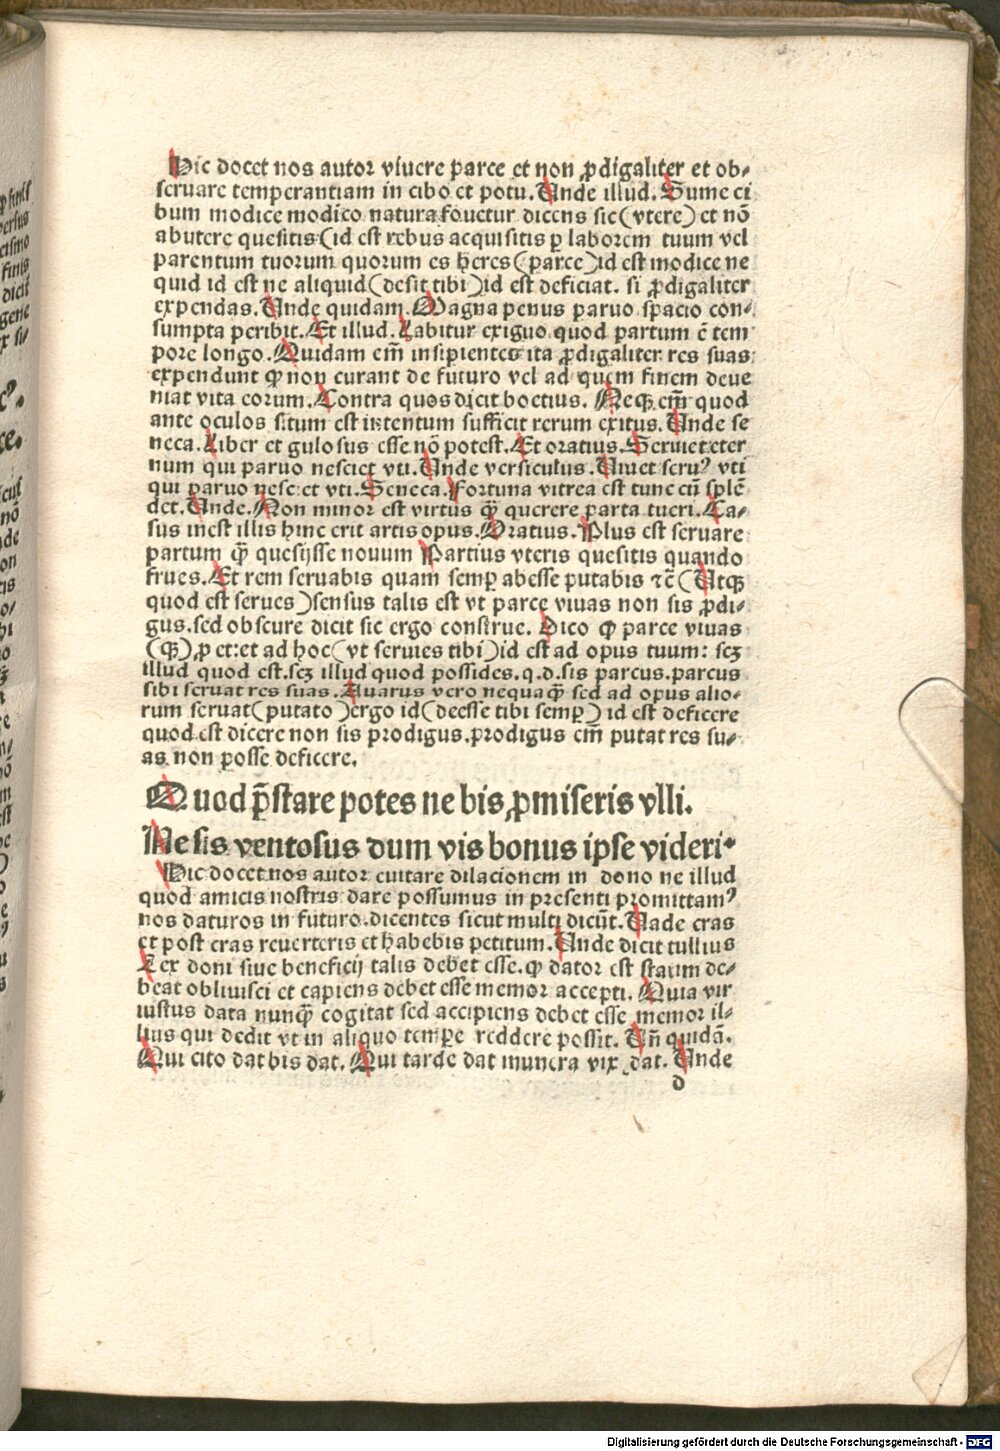 Hic docet nos autor viuere parce et non ꝓdigaliter et ob⸗
seruare temperantiam in cibo et potu. Unde illud. Sume ci
bum modice modico natura fouetur dicens sic (vtere) et nō
abutere quesitis (id est rebus acquisitis ꝑ laborem tuum vel
parentum tuorum quorum es heres (parce) id est modice ne
quid id est ne aliquid (desit tibi) id est deficiat. si ꝓdigaliter
expendas. Unde quidam. Magna penus paruo spacio con⸗
sumpta peribit. Et illud. Labitur exiguo quod partum ē tem
pore longo. Quidam em̄ insipientes ita ꝓdigaliter res suas
expendunt ꝙ non curant de futuro vel ad quem finem deue
niat vita eorum. Contra quos dicit boetius. Neqꝫ em̄ quod
ante oculos situm est intentum sufficit rerum exitus. Unde se
neca. Liber et gulosus esse nō potest. Et oratius. Seruiet eter
num qui paruo nesciet vti. Unde versiculus. Uiuet seruꝰ vti
qui paruo nesciet vti. Seneca. Fortuna vitrea est tunc cū splē
det. Unde. Non minor est virtus q̄ꝫ querere parta tueri. Ca⸗
sus inest illis hinc erit artis opus. Oratius. Plus est seruare
partum q̄ꝫ quesijsse nouum Partius vteris quesitis quando
frues. Et rem seruabis quam semꝑ abesse putabis ⁊cē (Utqꝫ
quod est serues) sensus talis est vt parce viuas non sis ꝓdi⸗
gus. sed obscure dicit sic ergo construe. Dico ꝙ parce viuas
(qꝫ) ꝓ et: et ad hoc (vt seruies tibi) id est ad opus tuum: scꝫ
illud quod est. scꝫ illud quod possides. q. d. sis parcus. parcus
sibi seruat res suas. Auarus vero nequaq̄ꝫ sed ad opus alio⸗
rum seruat (putato) ergo id (deesse tibi semꝑ) id est deficere
quod est dicere non sis prodigus. prodigus em̄ putat res su⸗
as non posse deficere.
Quod p̄stare potes ne bis ꝓmiseris vlli.
Ne sis ventosus dum vis bonus ipse videri.
Hic docet nos autor euitare dilacionem in dono ne illud
quod amicis nostris dare possumus in presenti promittamꝰ
nos daturos in futuro. dicentes sicut multi dicūt. Uade cras
et post cras reuerteris et habebis petitum. Unde dicit tullius
Lex doni siue beneficij talis debet esse. ꝙ dator est statim de⸗
beat obliuisci et capiens debet esse memor accepti. Quia vir
iustus data nunq̄ꝫ cogitat sed accipiens debet esse memor il⸗
lius qui dedit vt in aliquo temꝑe reddere possit. Un̄ quidā.
Qui cito dat bis dat. Qui tarde dat munera vix dat. Unde
d
Digitalisierung gefördert durch die Deutsche Forschungsgemeinschaft - DFG